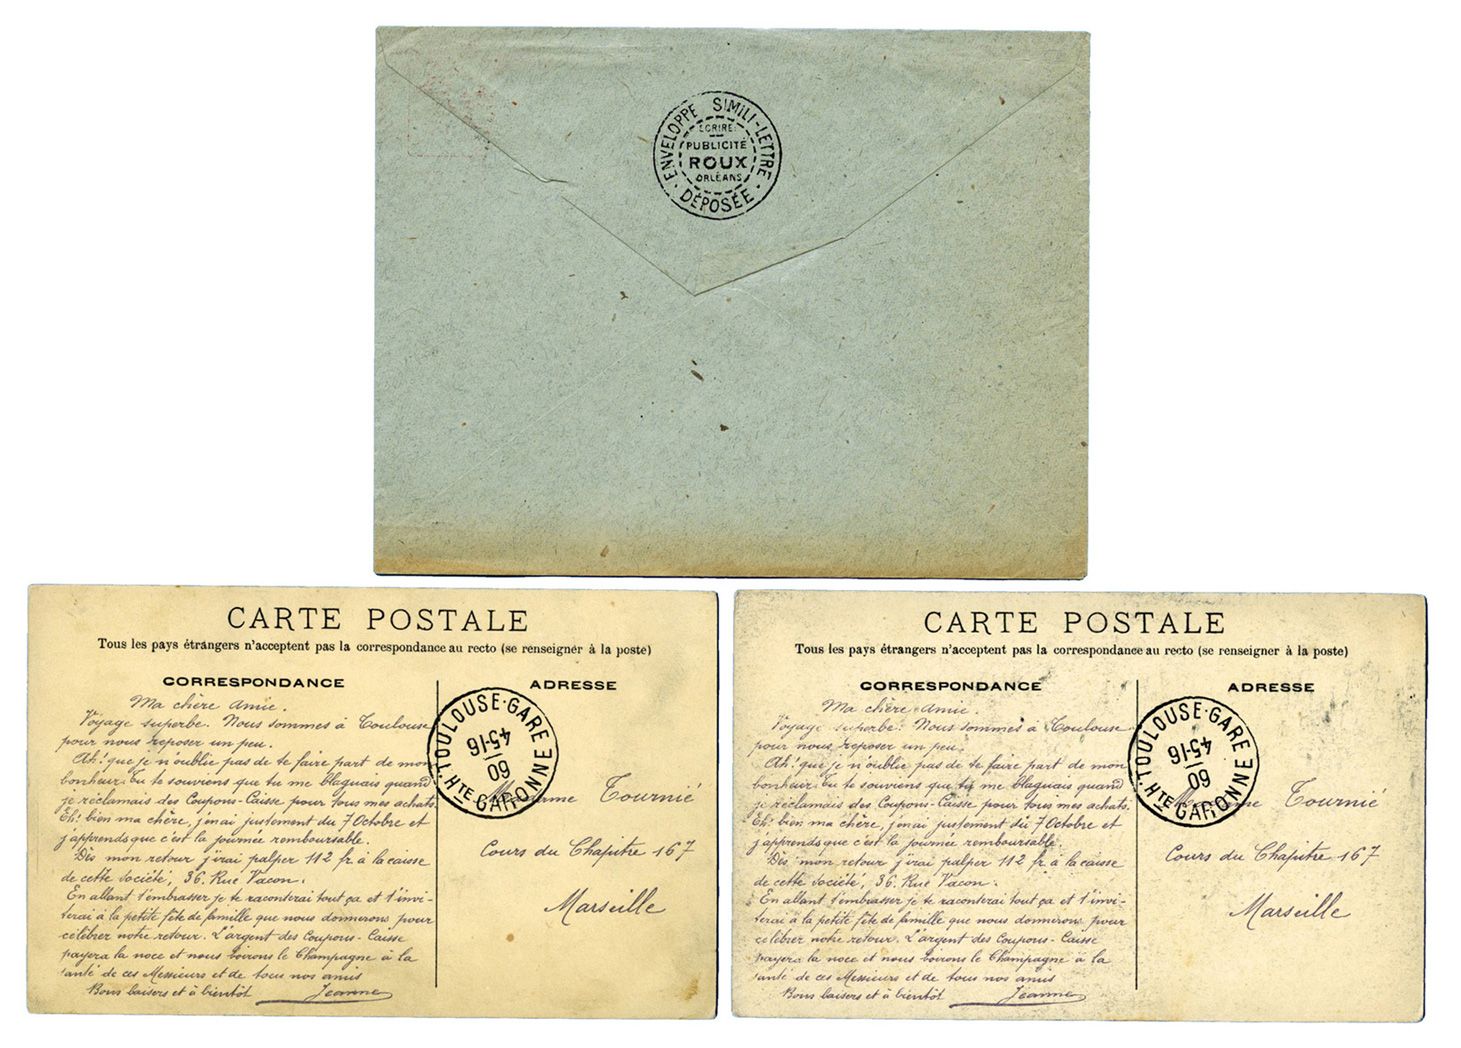 ENVELOPPE SIMILI-LETTRE
ÉCRIRE:
PUBLICITÉ
ROUX
ORLÉANS
DÉPOSÉE
CARTE POSTALE
Tous les pays étrangers n'acceptent pas la correspondance au recto (se renseigner à la poste)
CORRESPONDANCE
Ma chère Amie.
Voyage superbe. Nous sommes à Toulouse
pour nous reposer un peu.
Ah! que je n'oublie pas de te faire part de mon
bonheur. Tu te souviens que tu me blaguais quand
je réclamais des Coupons-Caisse pour tous mes achats.
Eh! bien ma chère, j'en ai justement du 7 Octobre et
j'apprends que c'est la journée remboursable.
Dès mon retour j'irai palper 112 fr à la caisse
de cette Société, 36. Rue Vacon.
En allant t'embrasser je te raconterai tout ça et t'invi-
terai à la petite fête de famille que nous donnerons pour
célébrer notre retour. L'argent des Coupons-Caisse
payera la noce et nous boirons le Champagne à la
santé de ces Messieurs et de tous nos amis
Bons baisers et à bientôt Jeanne
ADRESSE
TOULOUSE-GARE
45-16
09
Hte GARONNE
Tournié
Cours du Chapitre 167
Marseille
CARTE POSTALE
Tous les pays étrangers n'acceptent pas la correspondance au recto (se renseigner à la poste)
CORRESPONDANCE
Ma chère Amie.
Voyage superbe. Nous sommes à Toulouse
pour nous reposer un peu.
Ah! que je n'oublie pas de te faire part de mon
bonheur. Tu te souviens que tu me blaguais quand
je réclamais des Coupons-Caisse pour tous mes achats.
Eh! bien ma chère, j'en ai justement du 7 Octobre et
j'apprends que c'est la journée remboursable.
Dès mon retour j'irai palper 112 fr à la caisse
de cette Société, 36. Rue Vacon.
En allant t'embrasser je te raconterai tout ça et t'invi-
terai à la petite fête de famille que nous donnerons pour
célébrer notre retour. L'argent des Coupons-Caisse
payera la noce et nous boirons le Champagne à la
santé de ces Messieurs et de tous nos amis
Bons baisers et à bientôt Jeanne
ADRESSE
TOULOUSE-GARE
45-16
09
Hte GARONNE
Tournié
Cours du Chapitre 167
Marseille